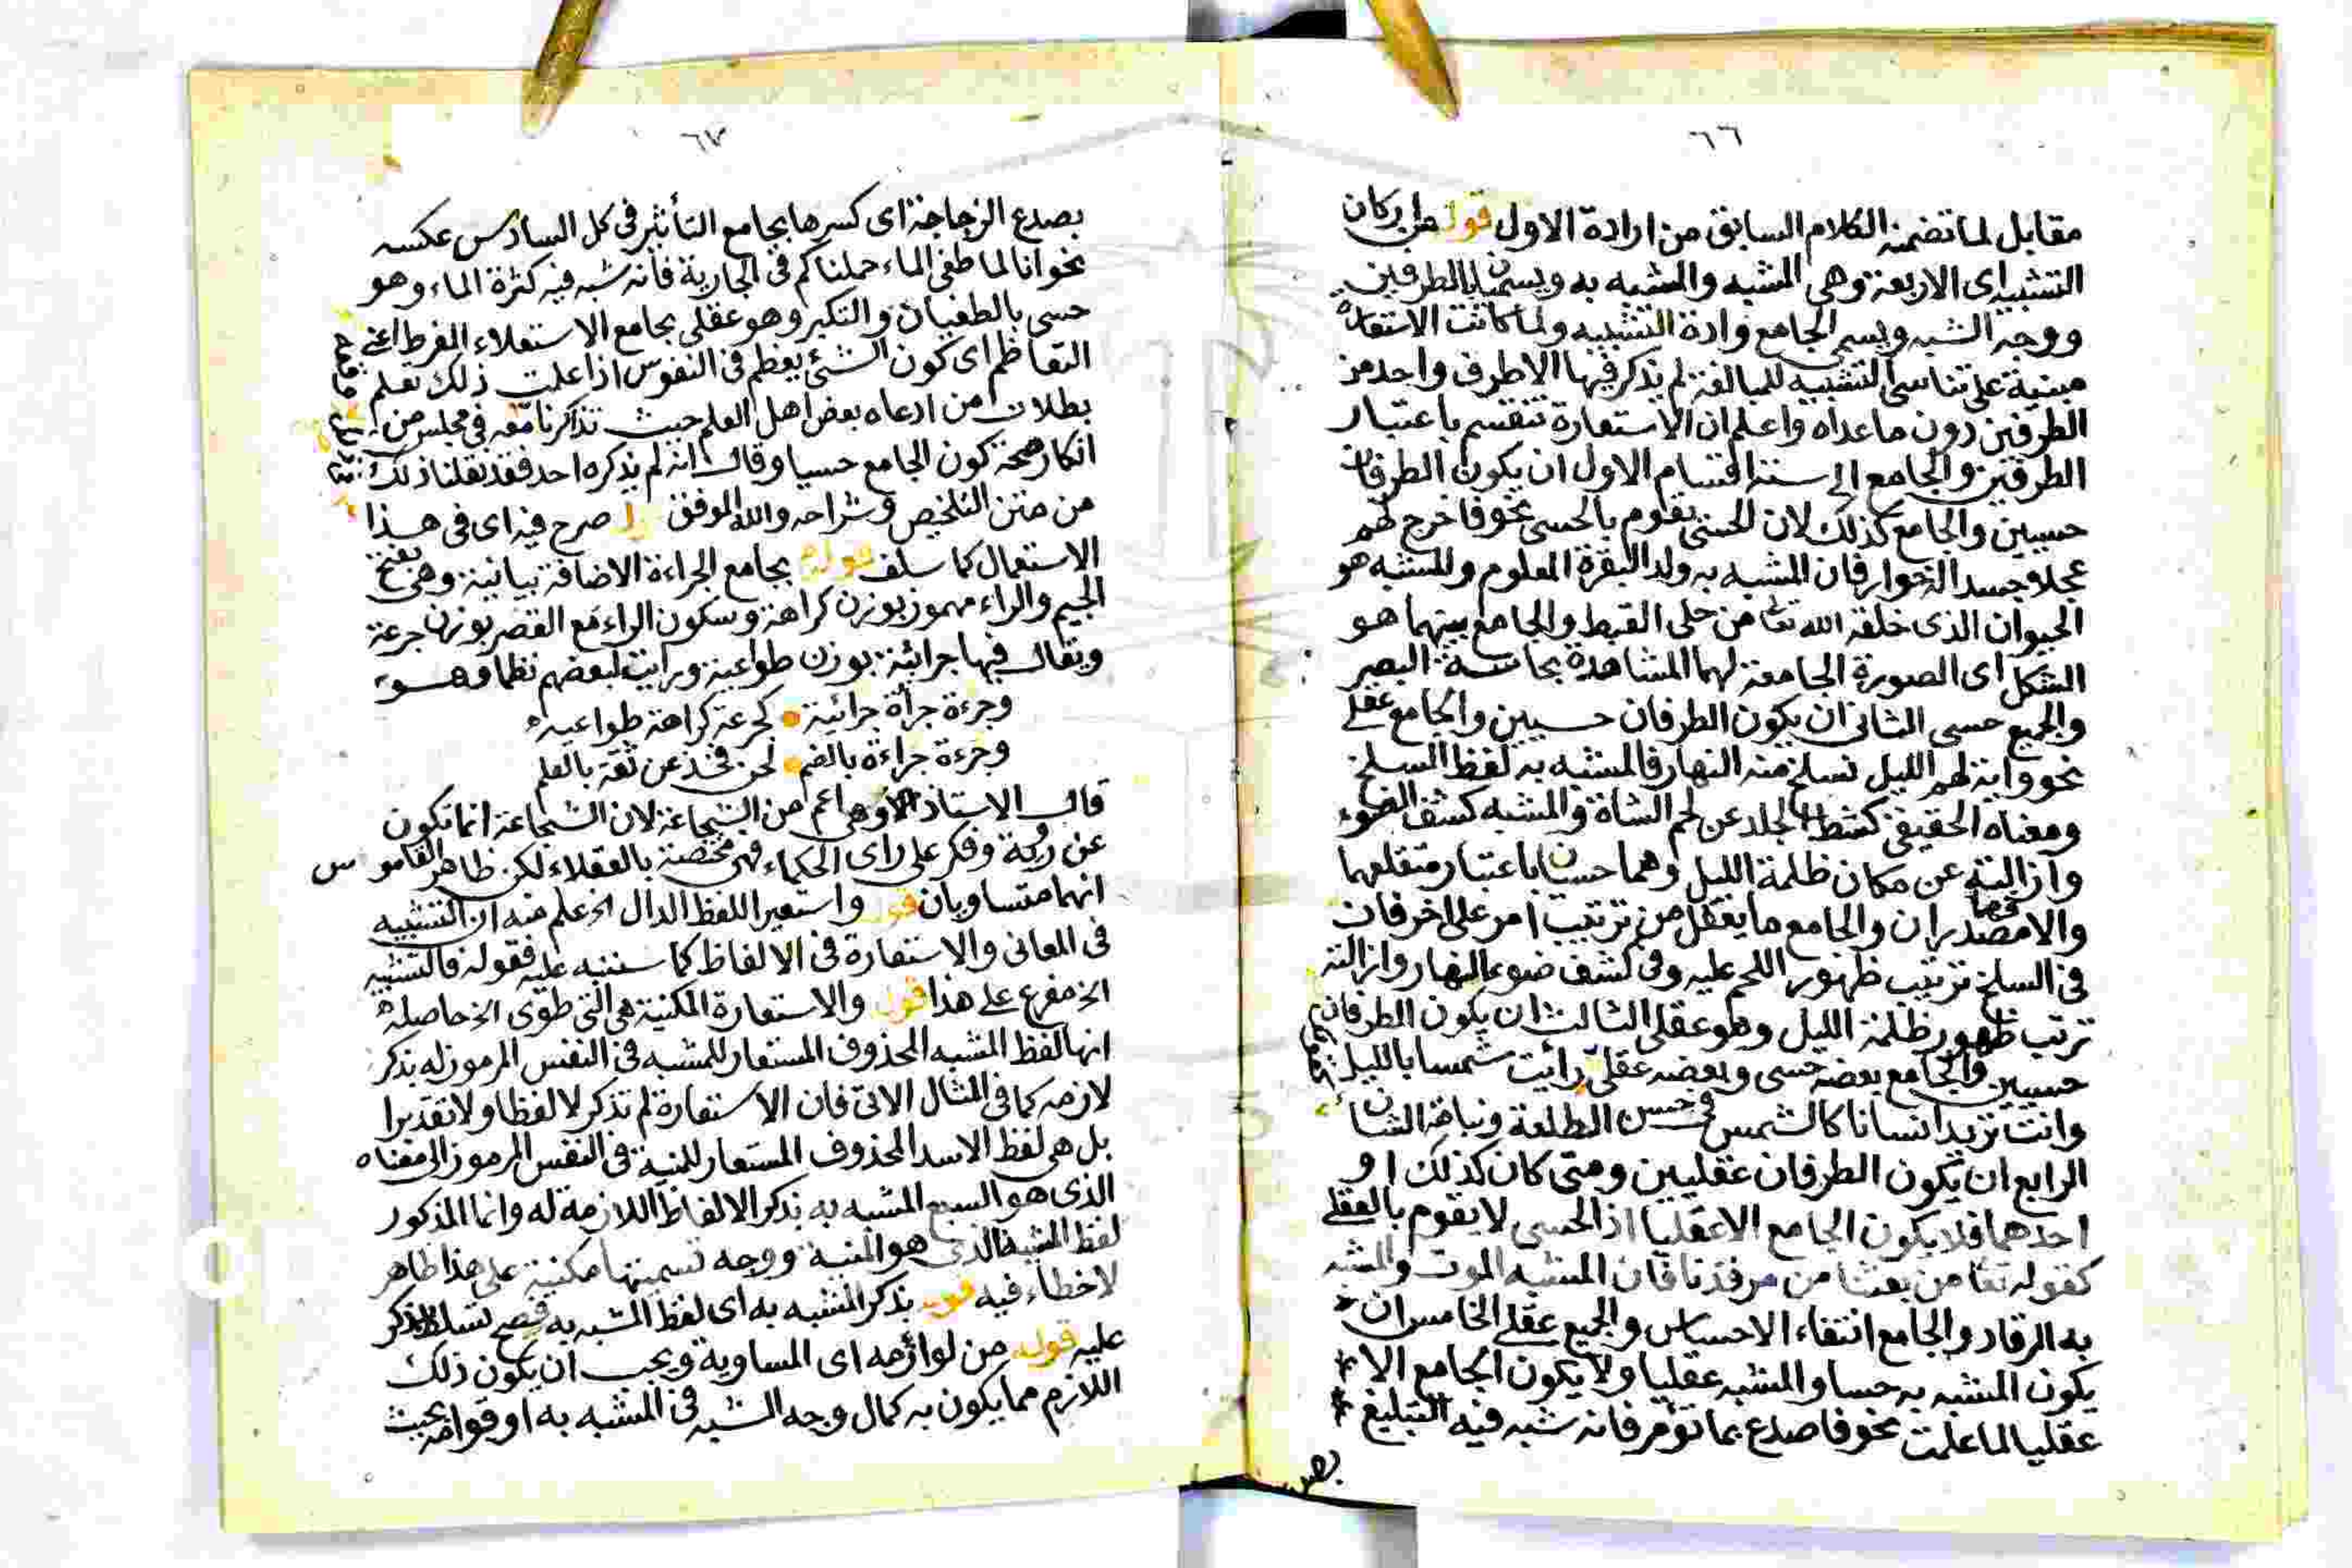 ٦٦
مقابل لما تضمنه الكلام السابق من ارادة الاول قوله من اركان
التشبيه اى الاربعة وهى المشبه والمشبه به ويسميان بالطرفين
ووجه الشبه ويسمى الجامع واداة التشبيه ولما كانت الاستعارة
مبنية على تناسى التشبيه للمبالغة لم يذكر فيها الا طرف واحد من
الطرفين دون ما عداه واعلم ان الاستعارة تنقسم باعتبار
الطرفين والجامع الى ستة اقسام الاول ان يكون الطرفان
حسيين والجامع كذلك لان الحسى يقوم بالحسى نحو فاخرج لهم
عجلا جسدا له خوار فان المشبه به ولد البقرة المعلوم والمشبه هو
الحيوان الذى خلقه الله تعا من حلى القبط والجامع بينهما هو
الشكل اى الصورة الجامعة لهما المشاهدة بحاسة البصر
والجميع حسى الثانى ان يكون الطرفان حسيين والجامع عقلى
نحو واية لهم الليل نسلخ منه النهار فالمشبه به لفظ السلخ
ومعناه الحقيقى كشط الجلد عن لحم الشاة والمشبه كشف الضوء
وازالته عن مكان ظلمة الليل وهما حسيان باعتبار متعلقهما
والا فهما مصدران والجامع ما يعقل من ترتب امر على اخر فان
فى السلخ ترتب ظهور اللحم عليه وفى كشف ضوء النهار وازالته
ترتب ظهور ظلمة الليل وهو عقلى الثالث ان يكون الطرفان
حسيين والجامع بعضه حسى وبعضه عقلى رأيت شمسا بالليل
وانت تريد انسانا كالشمس فى حسن الطلعة ونباهة الشان
الرابع ان يكون الطرفان عقليين ومتى كان كذلك او
احدهما فلا يكون الجامع الا عقليا اذ الحسى لا يقوم بالعقلى
كقوله تعا من بعثنا من مرقدنا فان المشبه الموت والمشبه
به الرقاد والجامع انتفاء الاحساس والجميع عقلى الخامس ان
يكون المشبه به حسا والمشبه عقليا ولا يكون الجامع الا
عقليا لما علمت نحو فاصدع بما تؤمر فانه شبه فيه التبليغ
بصدع
٦٧
بصدع الزجاجة اى كسرها بجامع التأثير فى كل السادس عكسه
نحو انا لما طغى الماء حملناكم فى الجارية فانه شبه فيه كثرة الماء وهو
حسى بالطغيان والتكبر وهو عقلى بجامع الاستعلاء المفرط اعنى
التعاظم اى كون الشئ يعظم فى النفوس اذا علمت ذلك تعلم
بطلان من ادعاه بعض اهل العلم حيث تذاكرنا معه فى مجلس من
انكار صحة كون الجامع حسيا وقال انه لم يذكره احد فقد نقلنا ذلك
من متن التلخيص وشراحه والله الموفق صرح فيه اى فى هذا
الاستعمال كما سلف قوله بجامع الجراءة الاضافة بيانية وهى بفتح
الجيم والراء مهموز بوزن كراهة وسكون الراء مع القصر بوزن جرعة
ويقال فيها جرائية بوزن طواعية ورايت لبعضهم نظما وهو
وجرءة جرأة جرائية كجرعة كراهة طواعيه
وجرءة جراءة بالضم لحن فخذ عن ثقة بالعلم
قال الاستاذ وهى اعم من الشجاعة لان الشجاعة انما تكون
عن روية وفكر على راى الحكماء فهى مختصة بالعقلاء لكن ظاهر القاموس
انهما متساويان قوله واستعير اللفظ الدال الخ علم منه ان التشبيه
فى المعانى والاستعارة فى الالفاظ كما سننبه عليه فقوله فالتشبيه
الخ مفرع على هذا قوله والاستعارة المكنية هى التى طوى الخ حاصله
انها لفظ المشبه المحذوف المستعار للمشبه فى النفس المرموز له بذكر
لازمه كما فى المثال الاتى فان الاستعارة لم تذكر لا لفظا ولا تقديرا
بل هى لفظ الاسد المحذوف المستعار للمنية فى النفس المرموز الى معناه
الذى هو السبع المشبه به بذكر الالفاظ اللازمة له وانما المذكور
لفظ المشبه الذى هو المنية ووجه تسميتها مكنية على هذا ظاهر
لا خطاء فيه قوله بذكر المشبه به اى لفظ المشبه به فصح تسلط الذكر
عليه قوله من لوازمه اى المساوية ويجب ان يكون ذلك
اللازم مما يكون به كمال وجه الشبه فى المشبه به او قوامه بحيث